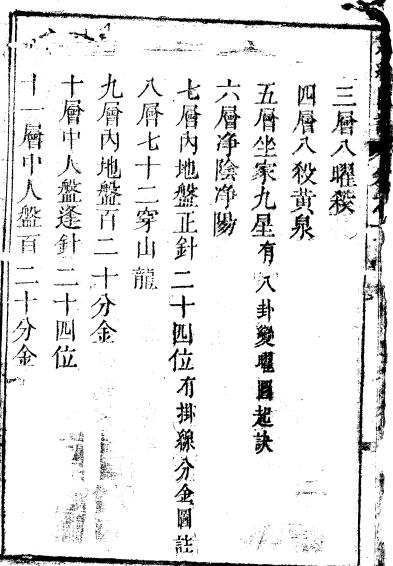 三層八曜殺
四層八殺黃泉
五層坐家九星有八卦變曜圖起訣
六層净陰净陽
七層內地盤正針二十四位有掛線分金圖註
八層七十二穿山龍
九層內地盤百二十分金
十層中人盤逢針二十四位
十一層中人盤百二十分金
二